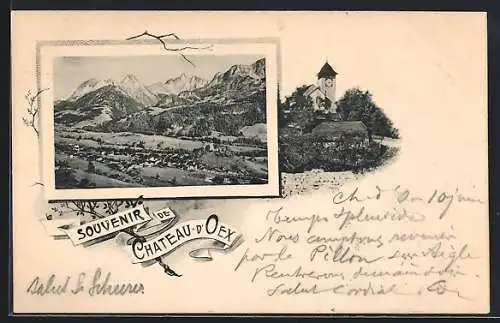 SOUVENIR DE
CHATEAU-D'OEX
Ch d'Oex 10 juin
Temps splendide
Nous comptons revenir
par le Pillon sur Aigle
Rentrerons demain soir
Salut cordial
Salut